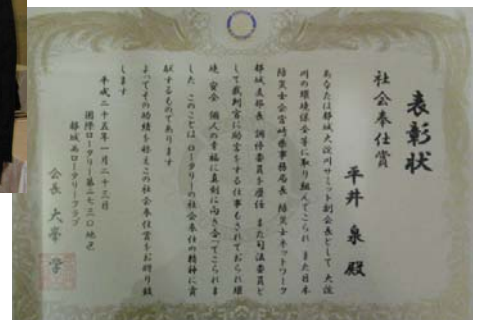 表彰状
社会奉仕賞
平井 泉 殿
あなたは都城大淀川サミット副会長として 大淀
川の環境保全等に取り組んでこられ また日本
防災士会宮崎県事務局長 防災士ネットワーク
都城支部長 調停委員を歴任 また司法委員と
して裁判官に助言をする仕事もされておられ環
境 安全 個人の幸福に真剣に向き合ってこられま
した このことは ロータリー社会奉仕の精神に貢
献するものであります
よってその功績を称えこの社会奉仕賞をお贈り致
します
平成二十五年一月二十三日
国際ロータリー第二七三〇地区
都城西ロータリークラブ
会長 大峯 学